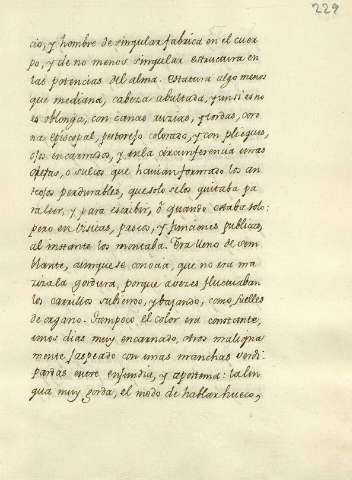 229
cio, y hombre de singular fabrica en el cuer
po, y de no menos singular estructura en
las potencias del alma. Estatura algo menos
que mediana, cabeza abultada, y un si es no
es oblonga, con canas rucias, y lordas, coro
na episcopal, pestorejo colorado, y con pliegues,
ojos encarnados, y en la circunferencia unas
ojeras, o sulcos que havian formado los an
teojos perdurables, que solo se los quitaba pa
ra leer, y para escribir, ô quando estaba solo:
pero en visitas, paseos, y funciones publicas,
al instante los montaba. Era lleno de sem
blante, aunque se conocia, que no era ma
ziza la gordura, porque a veces fluctuaban
los carrillos subiendo, y bajando, como fuelles
de organo. Tampoco el color era constante,
unos dias muy encarnado, otros maligna
mente jaspeado con unas manchas verdi
pardas entre enjundia, y apostema: la len
gua muy gorda, el modo de hablar hueco,